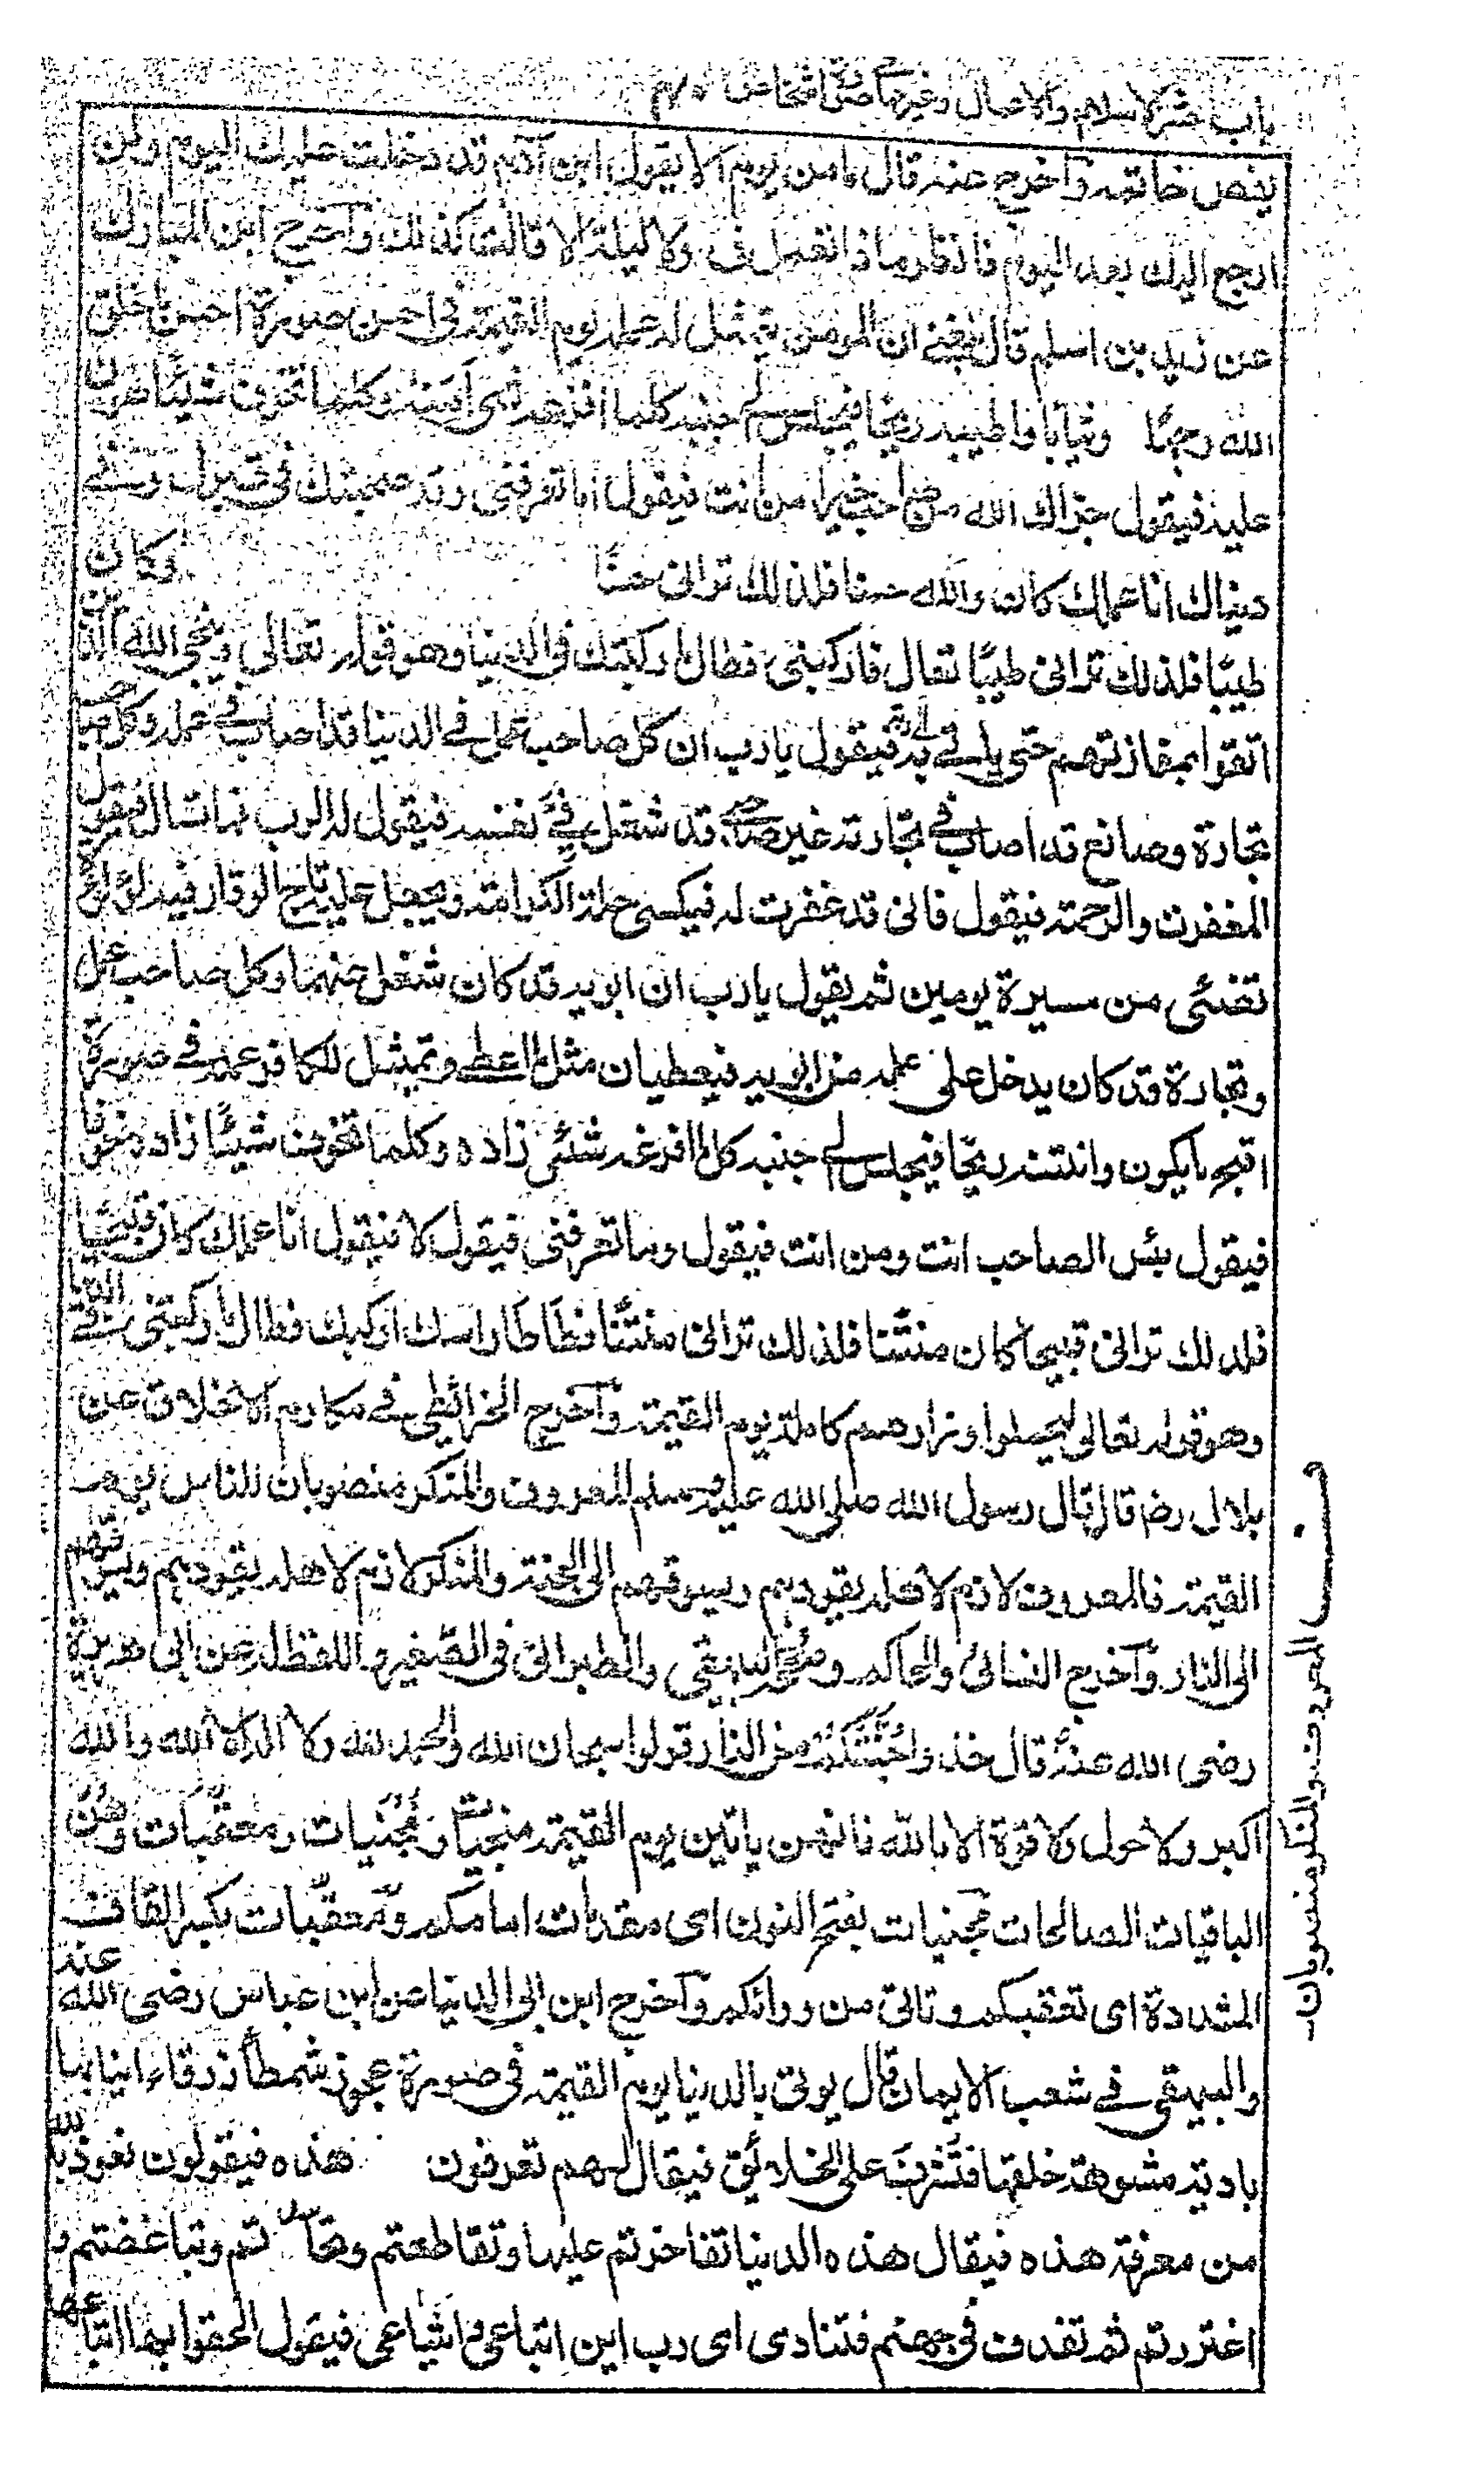 باب حشر الاسلام والاعمال وغيرهما صلى اشخاص
يفض خاتمه وآخرج عنه قال ما من يوم الا يقول ابن آدم قد دخلت عليك اليوم ولن
ارجع اليك بعد اليوم فانظر ماذا تعمل فى ولا ليلة الا قالت كذلك وآخرج ابن المبارك
عن زيد بن اسلم قال بلغنى ان المومن يتمثل له عمله يوم القيمة فى احسن صورة احسن ما خلق
الله وجها وثيابا واطيبه ريحا فيجلس الى جنبه كلما افزعه شى امنه وكلما تخوف شيئا هون
عليه فيقول جزاك الله من صاحب خيرا من انت فيقول اما تعرفنى وقد صحبتك فى قبرك وفى
دنياك انا عملك كان والله حسنا فلذلك ترانى حسنا وكان
طيبا فلذلك ترانى طيبا تعال فاركبنى فطال ما ركبتك فى الدنيا وهو قوله تعالى وينجى الله الذين
اتقوا بمفازتهم حتى ياتى به الى ربه فيقول يا رب ان كل صاحب عمل فى الدنيا قد اصاب فى عمله وكل صاحب
تجارة وصانع قد اصاب فى تجارته غير صاحبى قد شغل فى نفسه فيقول له الرب فما تسال فيقول
المغفرت والرحمة فيقول فانى قد غفرت له فيكسى حلة الكرامة ويجعل عليه تاج الوقار فيه لؤلؤة
تضئى من مسيرة يومين ثم يقول يا رب ان ابويه قد كان شغل عنهما وكل صاحب عمل
وتجارة قد كان يدخل على عمله من ابويه فيعطيان مثل ما اعطى ويتمثل للكافر عمله فى صورة
اقبح ما يكون وانتنه ريحا فيجلس الى جنبه كلما افزعه شئى زاده وكلما تخوف شيئا زاده خوفا
فيقول بئس الصاحب انت ومن انت فيقول وما تعرفنى فيقول لا فيقول انا عملك كان قبيحا
فلذلك ترانى قبيحا كان منتنا فلذلك ترانى منتنا فطاطا راسك اركبك فطال ما ركبتنى فى الدنيا
وهو قوله تعالى ليحملوا اوزارهم كاملة يوم القيمة وآخرج الخرائطى فى مكارم الاخلاق عن
بلال رضـ قال قال رسول الله صلى الله عليه وسلم المعروف والمنكر منصوبان للناس يوم
القيمة فالمعروف لازم لاهله يقودهم ويسوقهم الى الجنة والمنكر لازم لاهله يقودهم ويسوقهم
الى النار وآخرج النسائى والحاكم وصححه البيهقى والطبرانى فى الصغير واللفظ له عن ابى هريرة
رضى الله عنه قال خذوا جُنَّتكم من النار قولوا سبحان الله والحمد لله ولا اله الا الله والله
اكبر ولا حول ولا قوة الا بالله فانهن ياتين يوم القيمة منجيات ومُجنّبات ومعقبات وهن
الباقيات الصالحات مجنبات بفتح النون اى مقدمات امامكم ومُعقبات بكسر القاف
المشددة اى تعقبكم وتاتى من ورائكم وآخرج ابن ابى الدنيا عن ابن عباس رضى الله عنه
والبيهقى فى شعب الايمان قال يوتى بالدنيا يوم القيمة فى صورة عجوز شمطاء زرقاء انيابها
بادية مشوهة خلقها فتشرف على الخلائق فيقال لهم تعرفون هذه فيقولون نعوذ بالله
من معرفة هذه فيقال هذه الدنيا تفاخرتم عليها وتقاطعتم وتحاسدتم وتباغضتم و
اغتررتم ثم تقذف فى جهنم فتنادى اى رب اين اتباعى واشياعى فيقول الحقوا بها اتباعها
المعروف والمنكر منصوبان